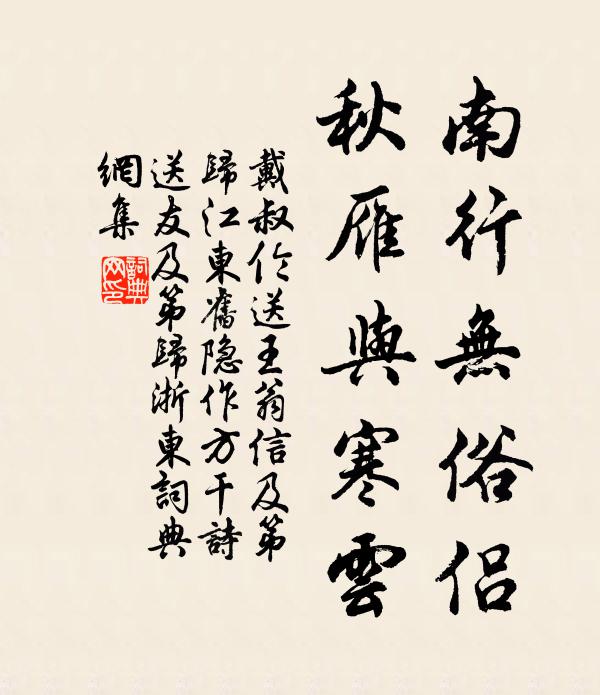 南行無俗侶
秋雁與寒雲
戴叔倫送王翁信及第
歸江東舊隐作方干詩
送友及第歸浙東詞典
網集
詞典網印